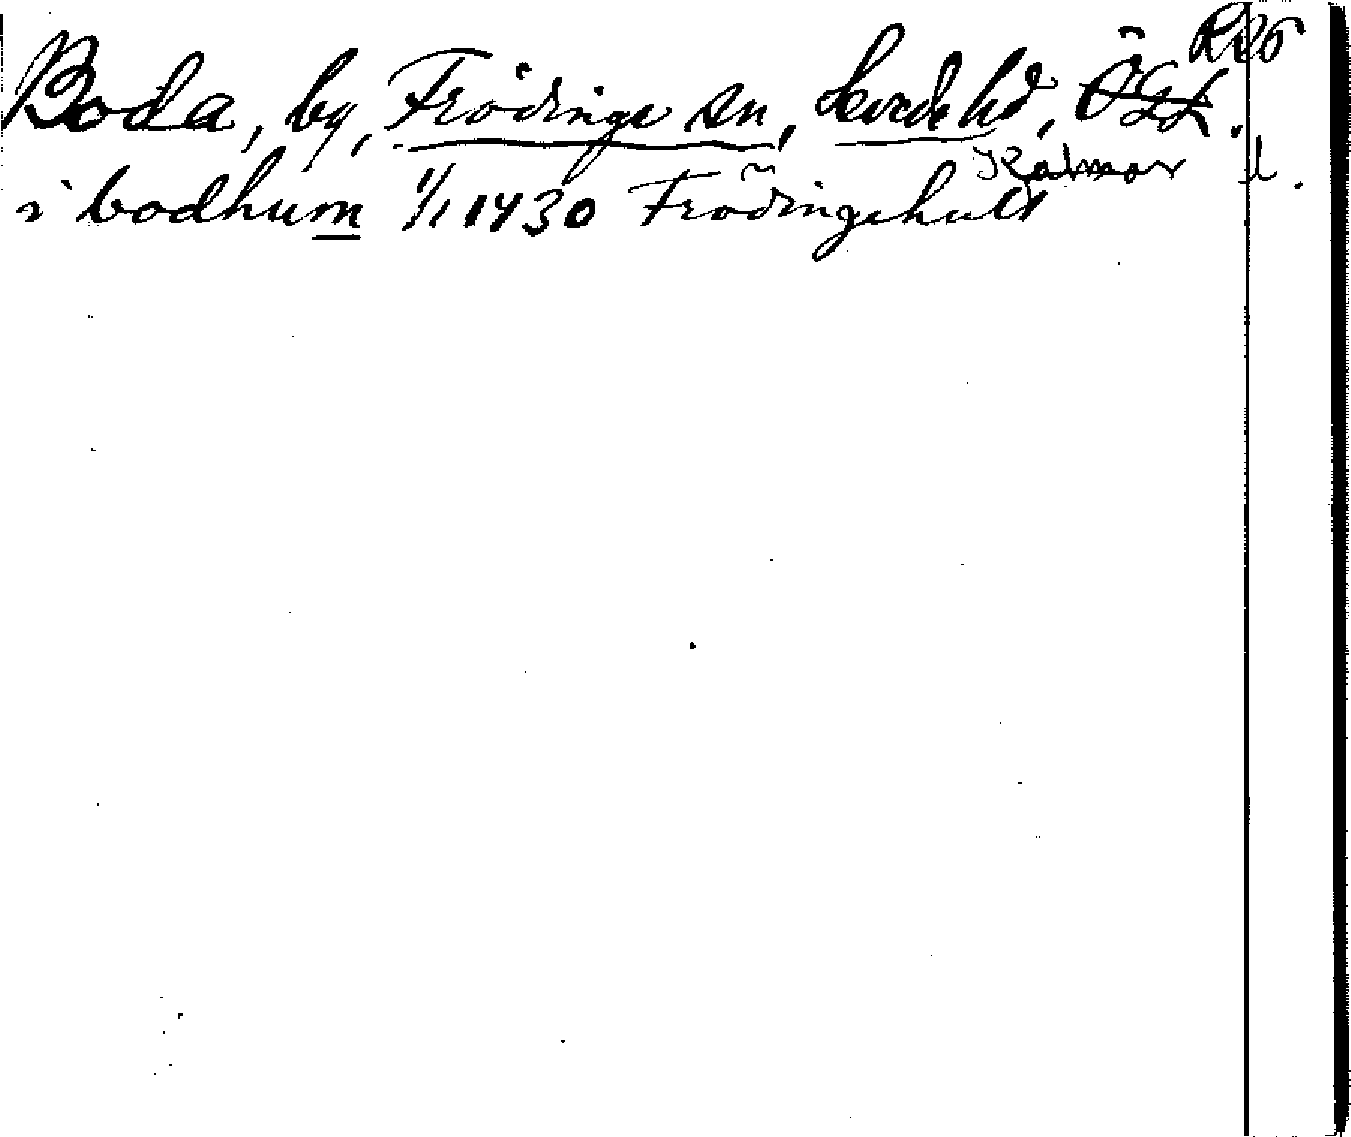 Boda, by, Frödinge sn, Sevede hd, ÖGL.
Kalmar l.
i bodhum 1/1 1430 Frödingehult